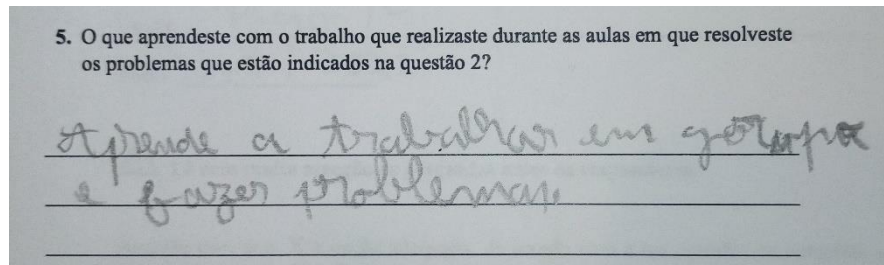 5. O que aprendeste com o trabalho que realizaste durante as aulas em que resolveste
os problemas que estão indicados na questão 2?
Aprende a trabalhar em gorupo
e fazer problemas